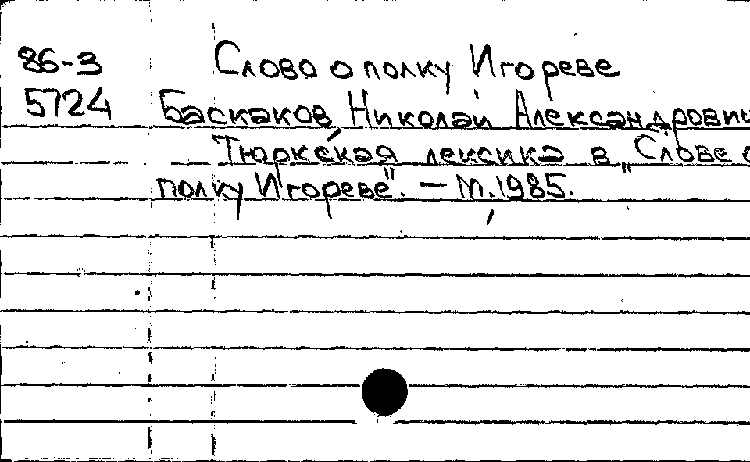 86-3 Слово о полку Игореве
5724 Баскаков, Николай Александрович
Тюркская лексика в "Слове о
полку Игореве". – М., 1985.